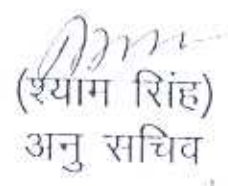 (श्याम सिंह)
अनु सचिव